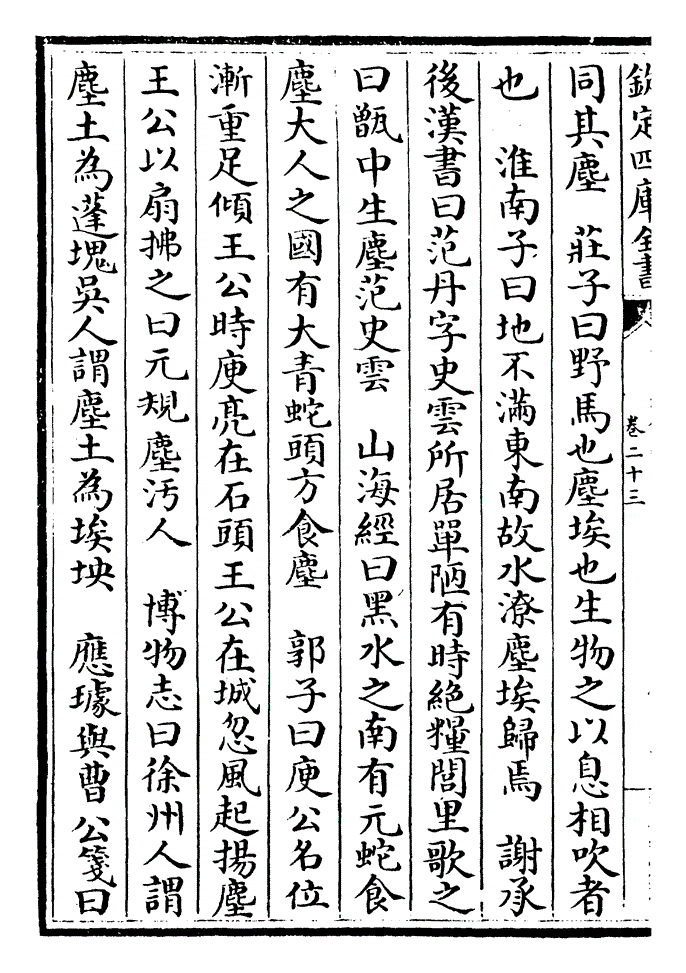 欽定四庫全書
卷二十三
同其塵　莊子曰野馬也塵埃也生物之以息相吹者
也　淮南子曰地不滿東南故水潦塵埃歸焉　謝承
後漢書曰范丹字史雲所居單陋有時絶糧閭里歌之
曰甑中生塵范史雲　山海經曰黑水之南有元蛇食
塵大人之國有大青蛇頭方食塵　郭子曰庾公名位
漸重足傾王公時庾亮在石頭王公在城忽風起揚塵
王公以扇拂之曰元規塵汚人　博物志曰徐州人謂
塵土為蓬塊吳人謂塵土為埃坱　應璩與曹公箋曰